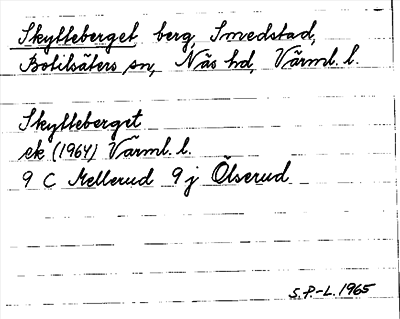 Skytteberget, berg, Smedstad,
Botilsäters sn, Näs hd, Värml. l.
Skytteberget
ek (1964) Värml. l.
9 C Mellerud 9 j Ölserud
S.P.-L. 1965